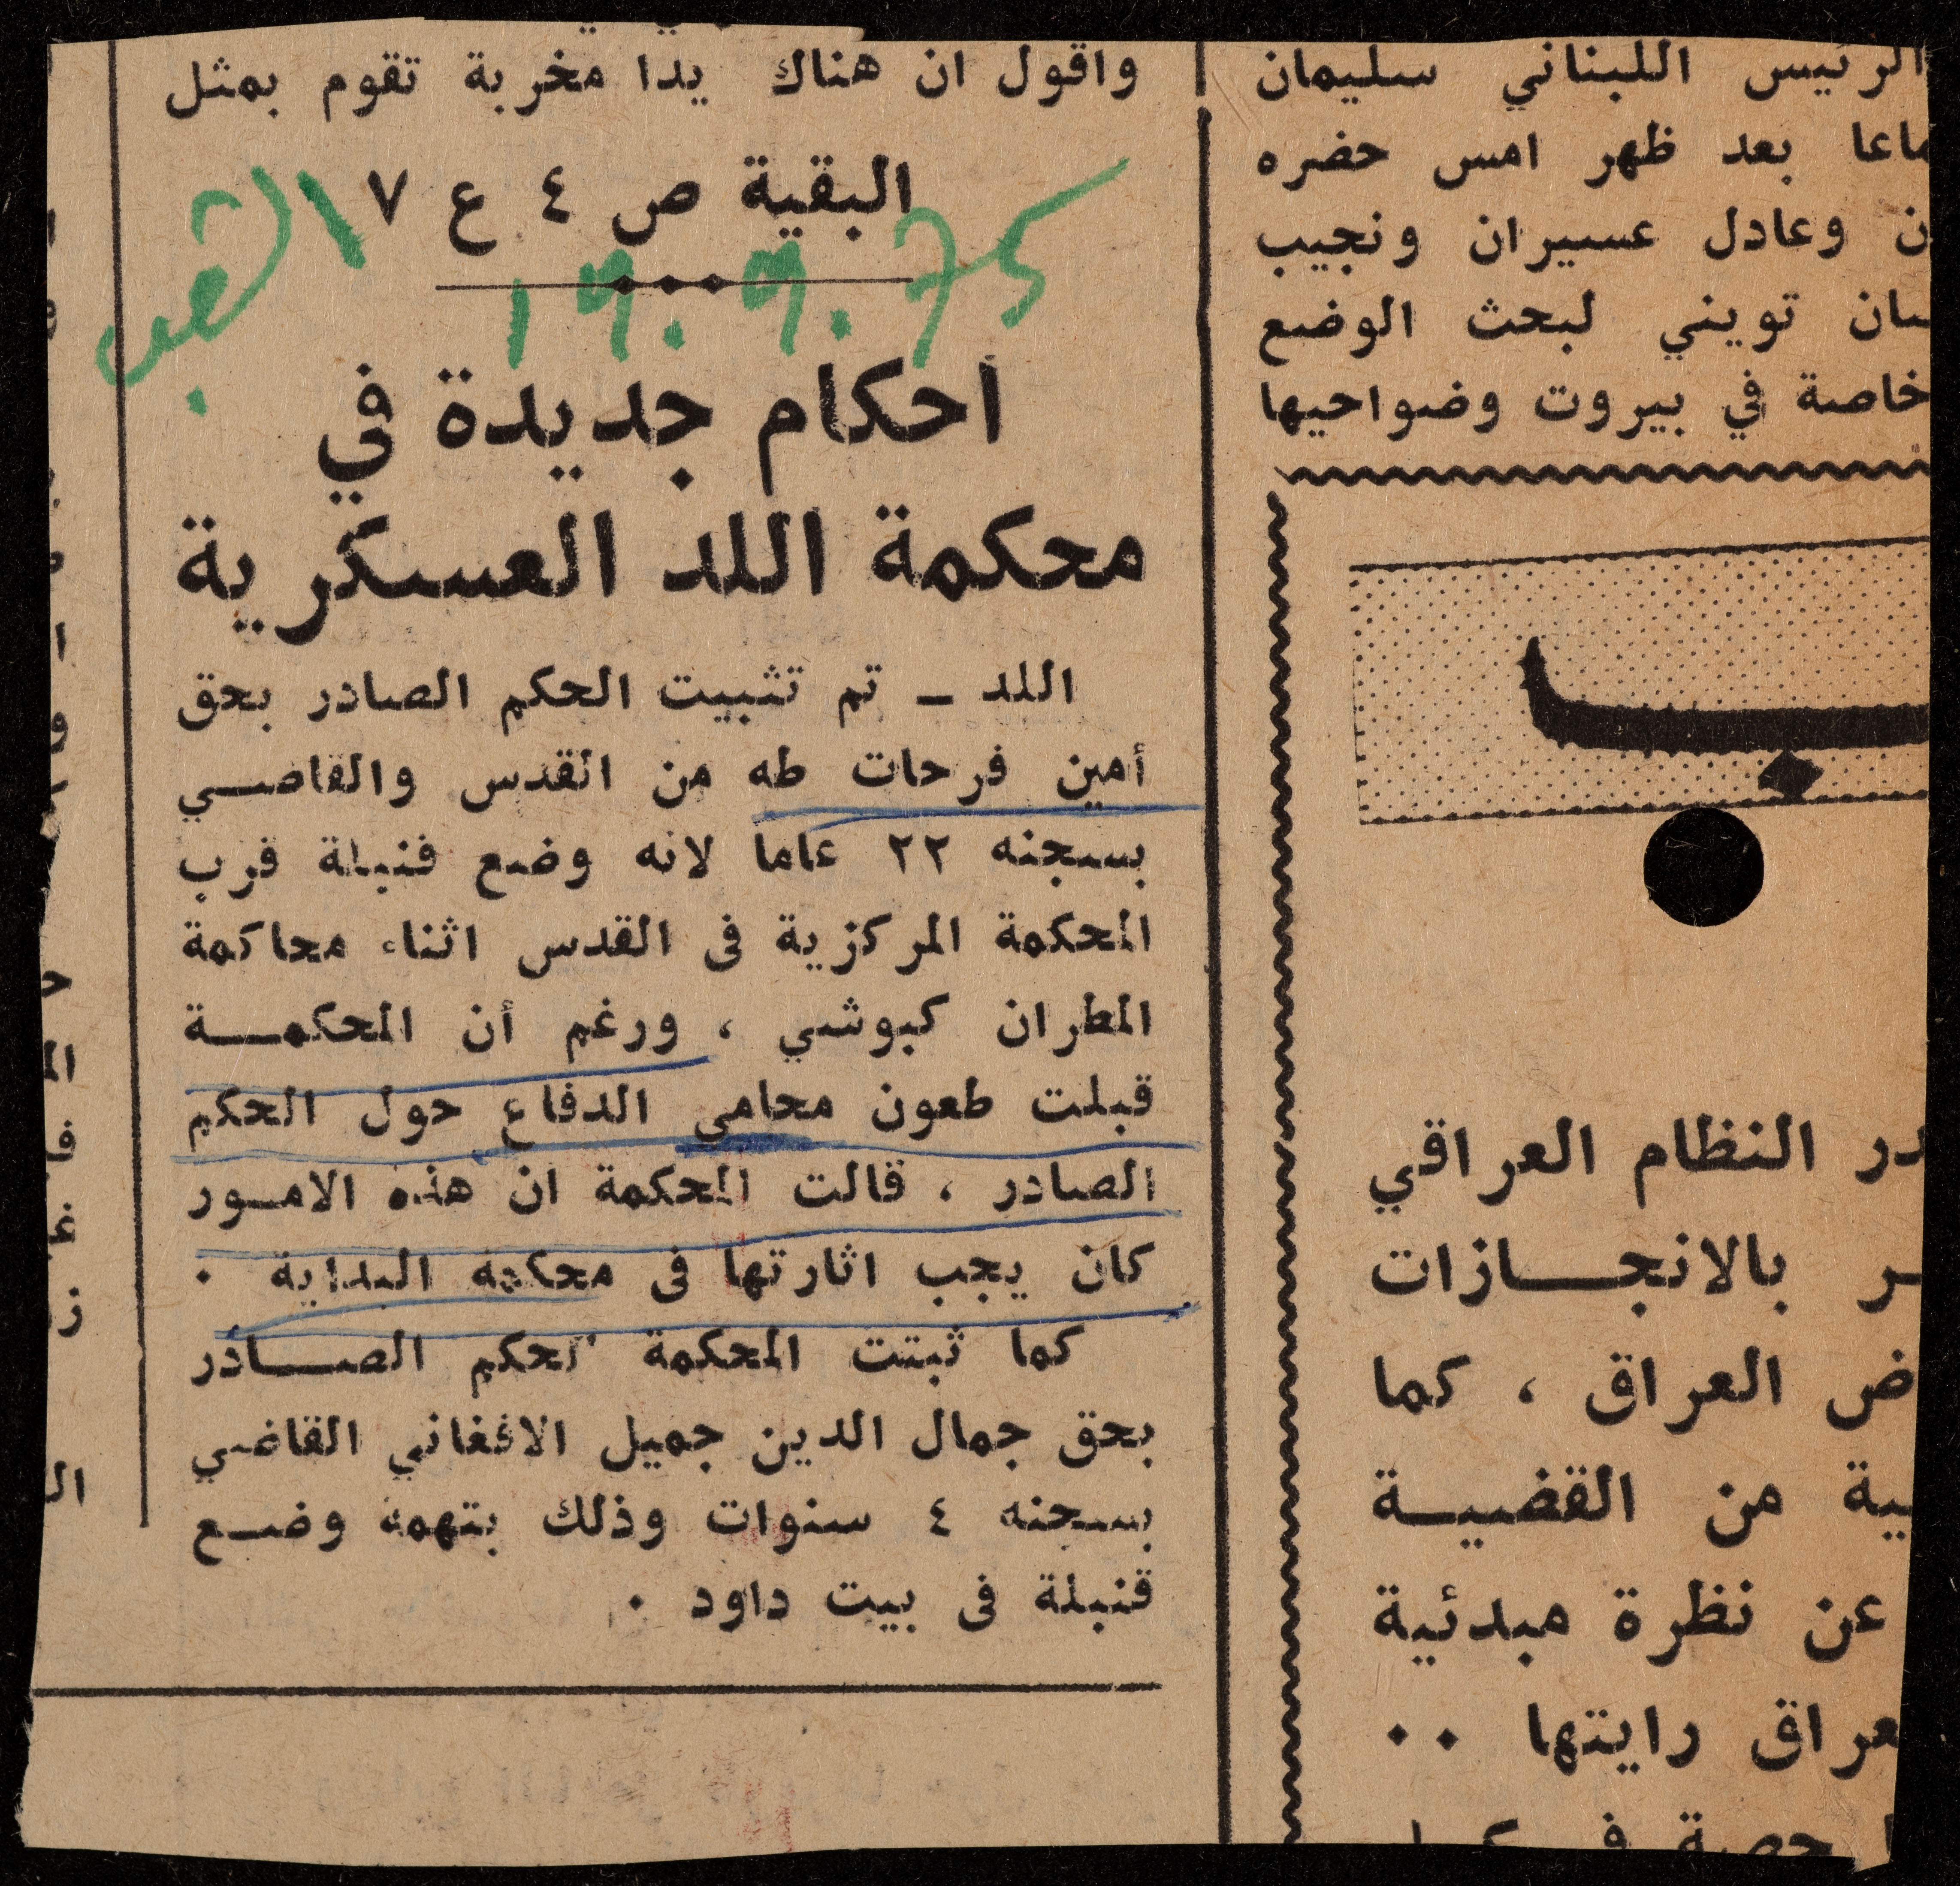 الرئيس اللبناني سليمان
بعد ظهر امس حضره
ن وعادل عسيران ونجيب
تويني لبحث الوضع
خاصة في بيروت وضواحيها
در النظام العراقي
ـر بالانجـــازات
ض العراق ، كما
ـية من القضيـــة
عن نظرة مبدئية
ـعراق رايتها ٠٠
واقول ان هناك يدا مخربة تقوم بمثل
البقية ص ٤ ع ٧
19.9.75
احكام جديدة في
محكمة اللد العسكرية
اللد ــ تم تثبيت الحكم الصادر بحق
أمين فرحات طه من القدس والقاضــي
بسجنه ٢٢ عاما لانه وضع قنبلة قرب
المحكمة المركزية في القدس اثناء محاكمة
المطران كبوشي ، ورغم أن المحكمـــة
قبلت طعون محامي الدفاع حول الحكم
الصادر ، قالت المحكمة ان هذه الامــور
كان يجب اثارتها في محكمة البداية ٠
كما ثبتت المحكمة الحكم الصـــادر
بحق جمال الدين جميل الافغاني القاضي
بسجنه ٤ سنوات وذلك بتهمة وضــع
قنبلة في بيت داود ٠